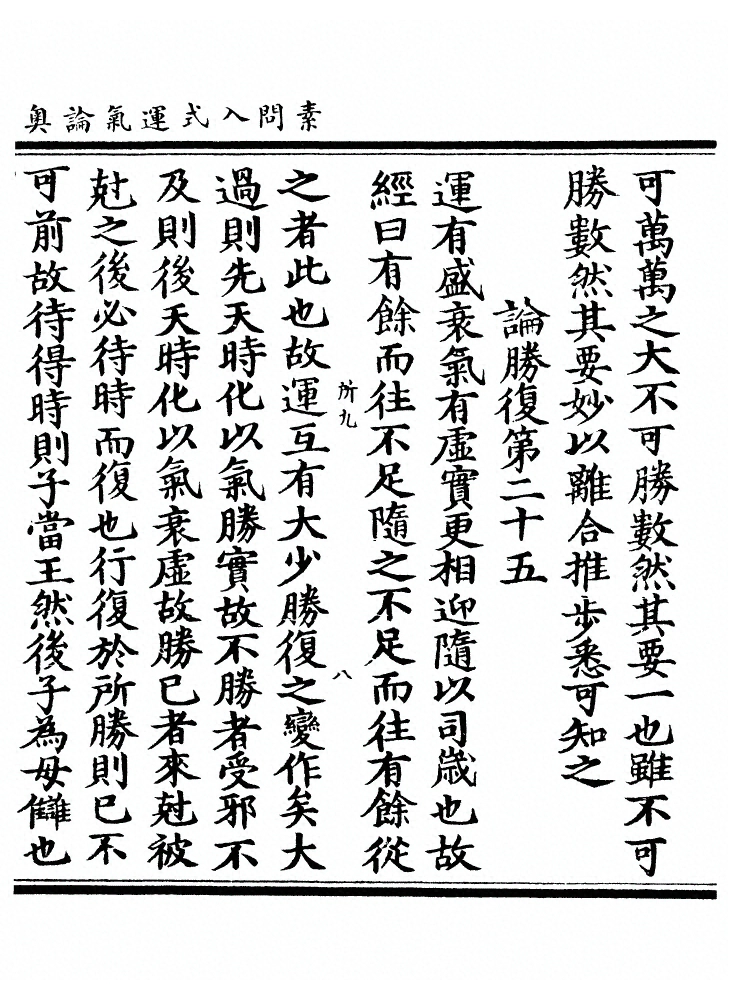 素問入式運氣論奥
可萬萬之大不可勝數然其要一也雖不可
勝數然其要妙以離合推步悉可知之
論勝復第二十五
運有盛衰氣有虛實更相迎隨以司歲也故
經曰有餘而往不足隨之不足而往有餘從
所九
八
之者此也故運互有大少勝復之變作矣大
過則先天時化以氣勝實故不勝者受邪不
及則後天時化以氣衰虛故勝已者來尅被
尅之後必待時而復也行復於所勝則已不
可前故待得時則子當王然後子為母讎也